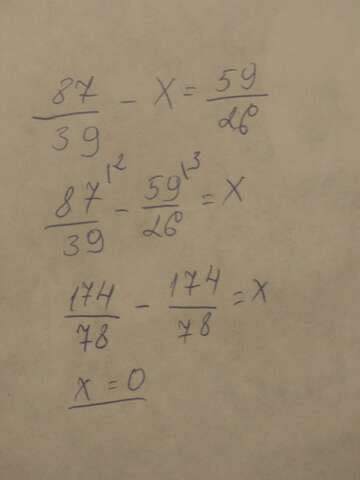 87/39 - x = 59/26
87/39 |2 - 59/26 |3 = x
174/78 - 174/78 = x
x = 0